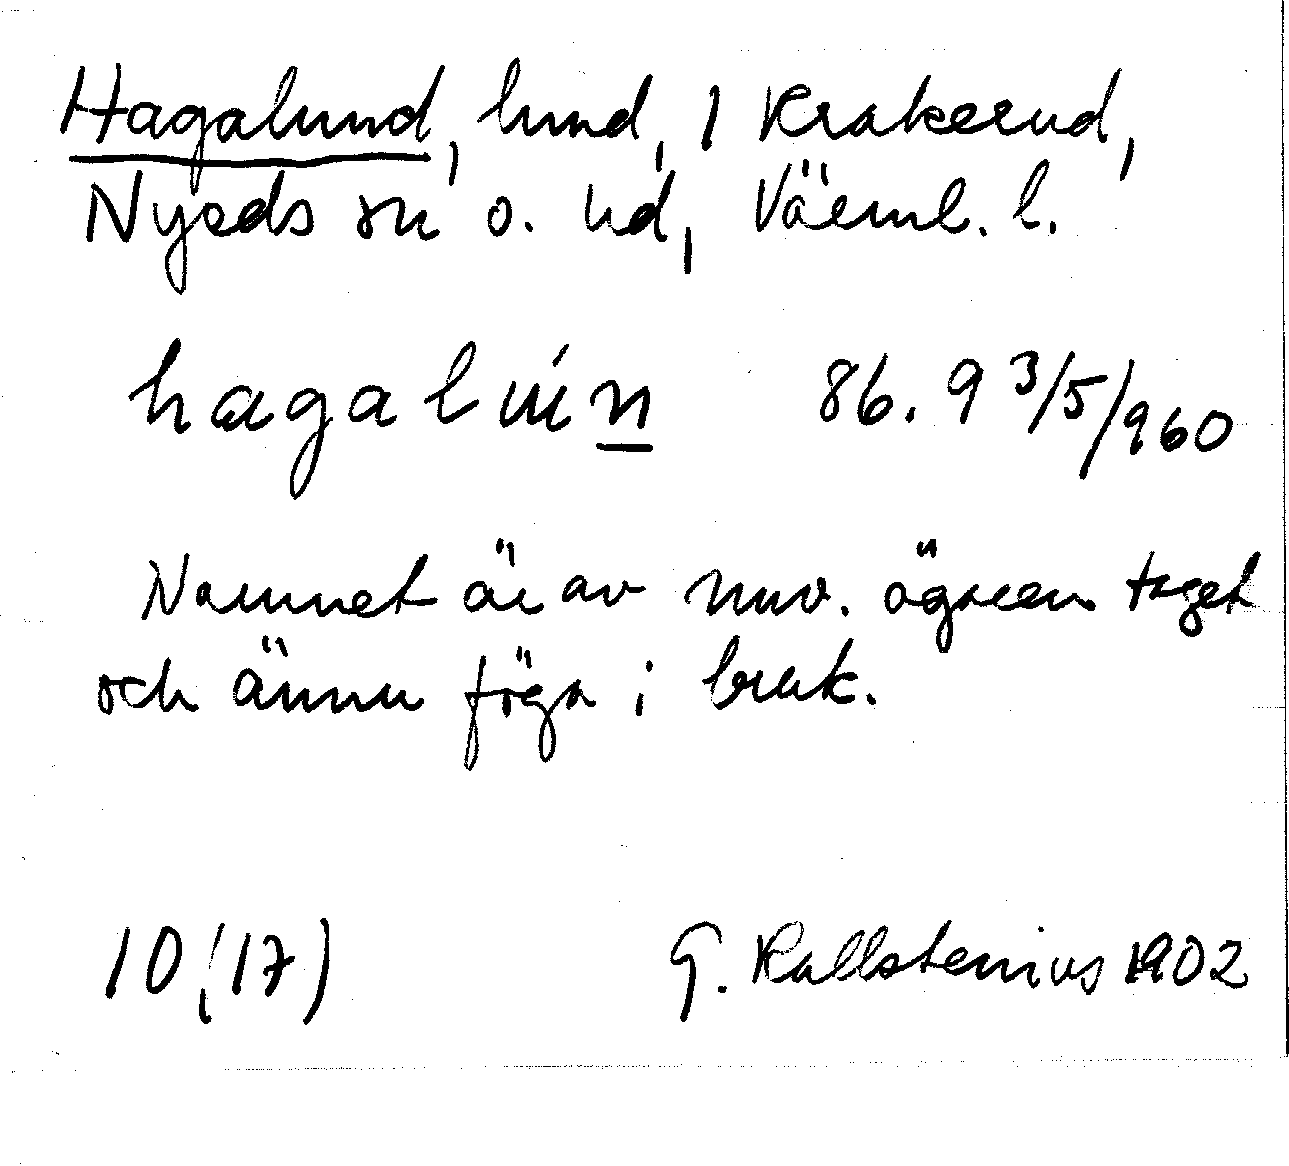 Hagalund, lund, 1 Krakerud,
Nyeds sn o. hd, Värml. l.
hagalúǹn 86. 9 3/5/960
Namnet är av nuv. ägaren taget
och ännu föga i bruk.
10(17) G. Kallstenius 1902